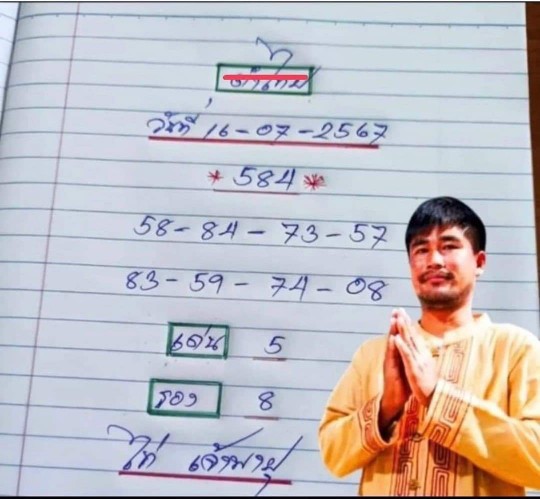 วันที่ 16-07-2567
* 584 *
58-84-73-57
83-59-74-08
เด่น 5
รอง 8
ไก่ เจ้าพายุ